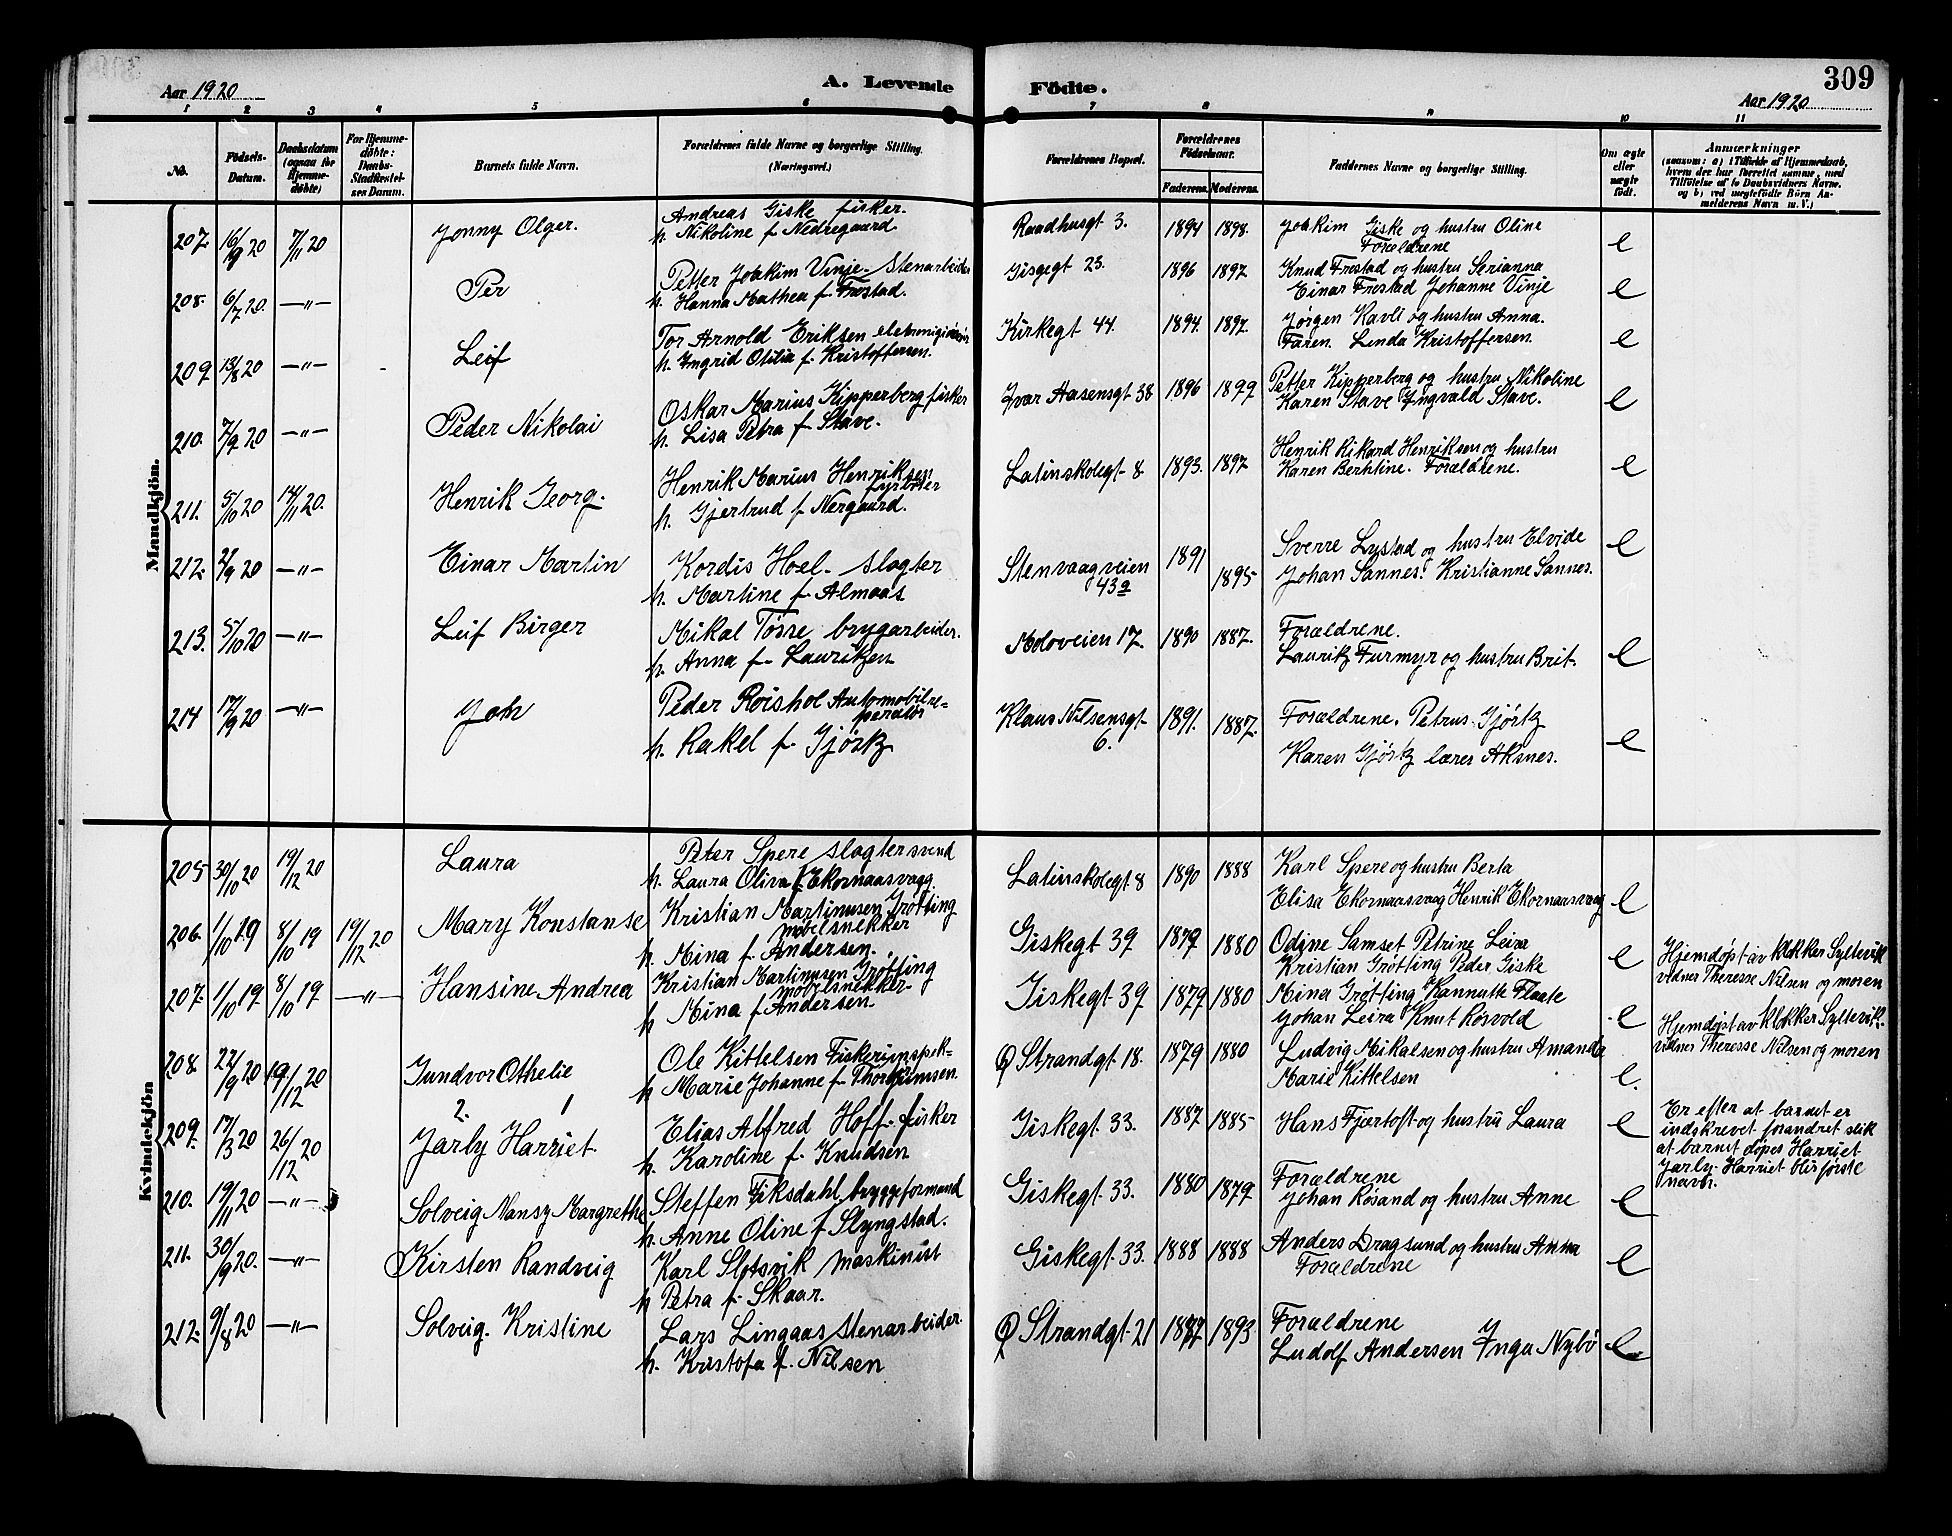 309
Aar 1920
A. Levende Födte.
Aar 1920
1 2 3 4 5 6 7 8 9 10 11
No.
Födsels-Datum.
Daabsdatum (ogsaa for Hjemmedöbte)
For Hjemmedöbte: Daabs-Stadfæstelses Datum.
Barnets fulde Navn.
Forældrenes fulde Navne og borgerlige Stilling. (Næringsvei.)
Forældrenes Bopæl.
Forældrenes Födselsaar.
Faderens. Moderens.
Faddernes Navne og borgerlige Stilling.
Om ægte eller uægte födt.
Anmærkninger
(saasom: a) i Tilfælde af Hjemmedaab, hvem der har forrettet samme, med Tilföielse af to Daabsvidners Navne. og b) ved uægtefödte Börn Anmelderens Navn m. V.)
Mandkjön.
207. 16/9 20 7/11 20 Jonny Olger. Andreas Giske fisker. Raadhusgt 3. 1894 1898. Joakim Giske og hustru Oline e
h. Nikoline f Nedregaard. Forældrene
208. 6/7 20. —"— Per Petter Joakim Vinje. Stenarbeider Gisgegt 23. 1896 1897 Knud Frestad og hustru Serianna e
h. Hanna Mathea f Frestad. Einar Frestad Johanne Vinje
209. 13/8 20 —"— Leif Tor Arnold Eriksen Kirkegt 44. 1894. 1897. Jørgen Kavli og hustru Anna. e
h. Ingrid Otilia f. Kristoffersen. Faren. Linda Kristoffersen.
210. 7/9 20 —"— Peder Nikolai Oskar Marius Kipperberg fisker Ivar Aasensgt 38 1896 1899 Petter Kipperberg og hustru Nikoline e
h. Lisa Petra f Stave. Karen Stave Ingvald Stave.
211. 5/10 20 14/11 20. Henrik Georg. Henrik Marius Henriksen fyrbøter Latinskolegt 8 1893. 1897 Henrik Rikard Henriksen og hustru e
h. Gjertrud f Nergaard. Karen Berhtine. Forældrene.
212. 2/9 20 —"— Einar Martin Kordis Hoel. slagter Stenvaagveien 43a 1891 1895 Sverre Lystad og hustru Elvide e
h. Martine f Almaas Johan Sannes. Kristianne Sannes.
213. 5/10 20 —"— Leif Birger Mikal Tørre brygarbeider. Moloveien 17 1890 1887. Forældrene. e
h. Anna f. Lauritzen Lauritz Furmyr og hustru Brit.
214 17/9 20 —"— Peder Roishol Automobilreperatør Klaus Nilsensgt 6. 1891. 1887. Forældrene. Petrus Gjørtz e
h. Rakel f. Gjørtz Karen Gjørtz lærer Aksnes.
Kvindekjön
205 30/10 20 19/12 20 Laura Peter Spere slagtersvend Latinskolegt 8 1890 1888 Karl Spere og hustru Berta e
h. Laura Oliva f Ekornaasvaag. Elisa Ekornaasvaag Henrik Ekornaasvaag
206. 1/10 19 8/10 19 19/12 20 Mary Konstanse Kristian Martinusen Grøtting møbelsnekker Giskegt 39 1879 1880 Odine Samset Petrine Leira e Hjemdøpt av klokker Syltevik
h. Mina f Andersen. Kristian Grøtting Peder Giske vidner Theresse Nilsen og moren
207. 1/10 19. 8/10 19 —"— Hansine Andrea Kristian Martinusen Grøtting møbelsnekker. Giskegt 39 1879 1880 Mina Grøtting Kannutte Flaate e Hjemdøpt av klokker Syltevik.
h Mina f Andersen Johan Leira Knut Røsvold vidner Theresse Nilsen og moren
208. 22/9 20 19/12 20 Gundvor Othelie Ole Kittelsen Fiskeriinspek- Ø Strandgt 18. 1879 1880 Ludvig Mikalsen og hustru Amanda e.
h Marie Johanne f Marie Kittelsen
209. 17/3 20 26/12 20 2. 1 Jarly Harriet. Elias Alfred Hoff. fisker Giskegt 33. 1887 1885 Hans Fjørtoft og hustru Laura e Er efter at barnet er
h. Karoline f. Knudsen indskrevet forandret slik
at barnet døpes Harriet
Jarly. Harriet blir første
navn.
210. 19/11 20 —"— Solveig Nansy Margrethe Steffen Fiksdahl bryggeformand Giskegt 33. 1880 1879 Forældrene e
h. Anne Oline f Slyngstad. Johan Rosand og hustru Anne
211. 30/9 20. —"— Kirsten Randveig Karl Sletsvik maskinist Giskegt 33. 1888 1888 Anders Dragsund og hustru Anna e
h Petra f. Skaar. Forældrene
212. 9/8 20 —"— Solveig. Kristine Lars Lingaas Stenarbeider Ø Strandgt 21 1893 Forældrene e
h. Kristofa f. Nilsen Ludolf Andersen Inga Nybø